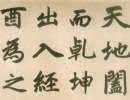 天地闔
而乾坤
出入經
酉為之